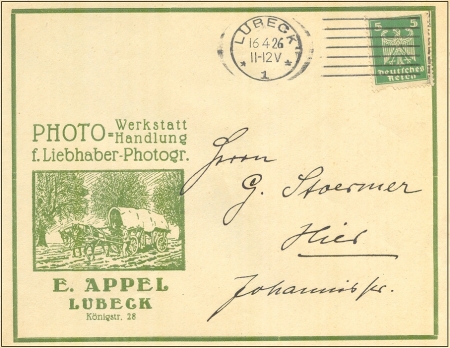 LÜBECK 1
16.4.26
11-12V
* 1 *
5 5
Deutsches
Reich
PHOTO=Werkstatt
Handlung
f. Liebhaber-Photogr.
E. APPEL
LÜBECK
Königstr. 28
Herrn
G. Stoermer
Hier
Johannisstr.